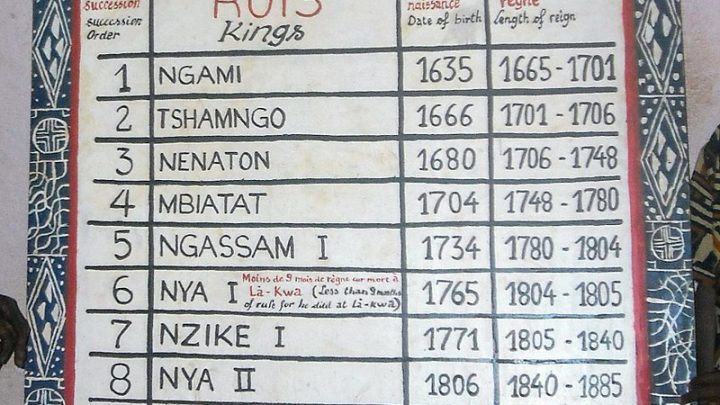 succession
succession
Order
ROIS
Kings
naissance
Date of birth
règne
Length of reign
1 NGAMI 1635 1665-1701
2 TSHAMNGO 1666 1701-1706
3 NENATON 1680 1706-1748
4 MBIATAT 1704 1748-1780
5 NGASSAM I 1734 1780-1804
6 NYA I Moins de 9 mois de règne car mort à 1765 1804-1805
Là-Kwa (less than 9 months
of rule for he died at Là-kwà)
7 NZIKE I 1771 1805-1840
8 NYA II 1806 1840-1885